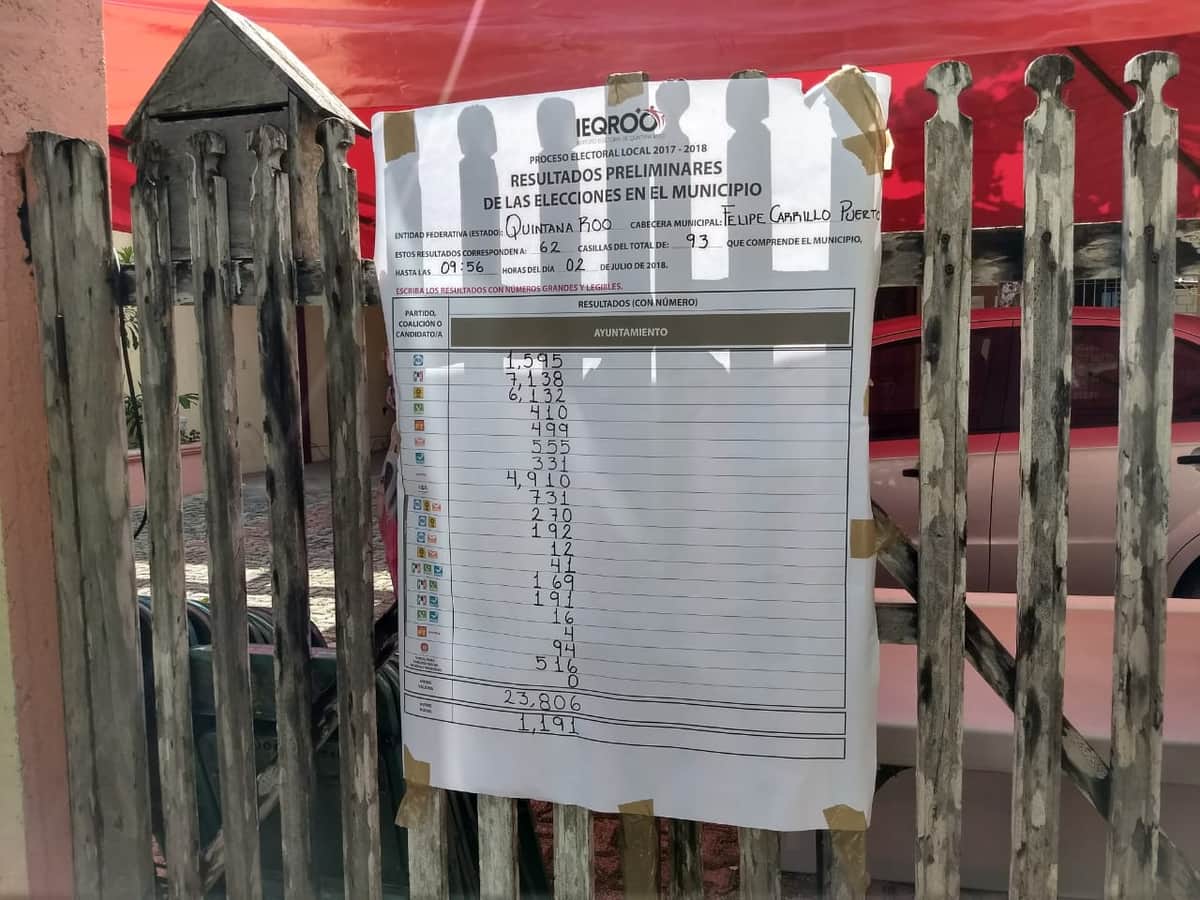 IEQROO
PROCESO ELECTORAL LOCAL 2017 - 2018
RESULTADOS PRELIMINARES
DE LAS ELECCIONES EN EL MUNICIPIO
ENTIDAD FEDERATIVA (ESTADO): QUINTANA ROO CABECERA MUNICIPAL: FELIPE CARRILLO PUERTO
ESTOS RESULTADOS CORRESPONDEN A: 62 CASILLAS DEL TOTAL DE: 93 QUE COMPRENDE EL MUNICIPIO,
HASTA LAS 09:56 HORAS DEL DÍA 02 DE JULIO DE 2018.
ESCRIBA LOS RESULTADOS CON NÚMEROS GRANDES Y LEGIBLES.
PARTIDO, COALICIÓN O CANDIDATO/A
RESULTADOS (CON NÚMERO)
AYUNTAMIENTO
1,595
7,138
6,132
410
499
555
331
4,910
731
270
192
12
41
169
191
16
4
94
516
0
23,806
1,191